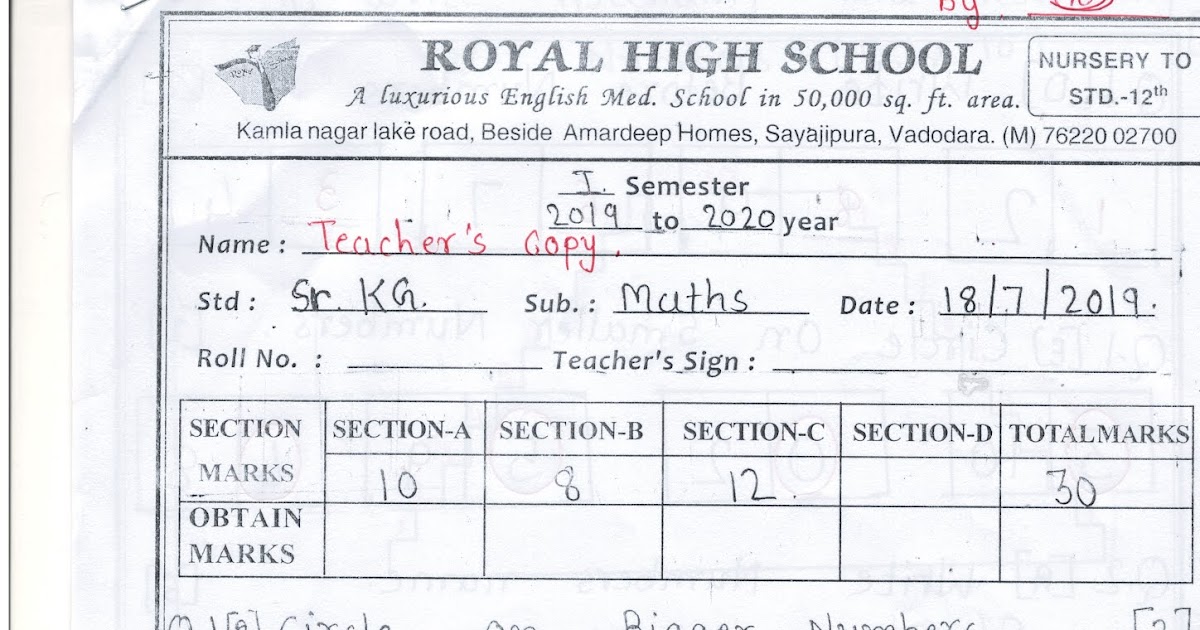 by
ROYAL HIGH SCHOOL
NURSERY TO
STD.-12th
A luxurious English Med. School in 50,000 sq. ft. area.
Kamla nagar lake road, Beside Amardeep Homes, Sayajipura, Vadodara. (M) 76220 02700
I. Semester
2019 to 2020 year
Name : Teacher's Copy.
Std : Sr. KG. Sub. : Maths Date : 18/7/2019.
Roll No. : Teacher's Sign :
SECTION SECTION-A SECTION-B SECTION-C SECTION-D TOTAL MARKS
MARKS 10 8 12. 30
OBTAIN
MARKS
Circle on Bigger Numbers